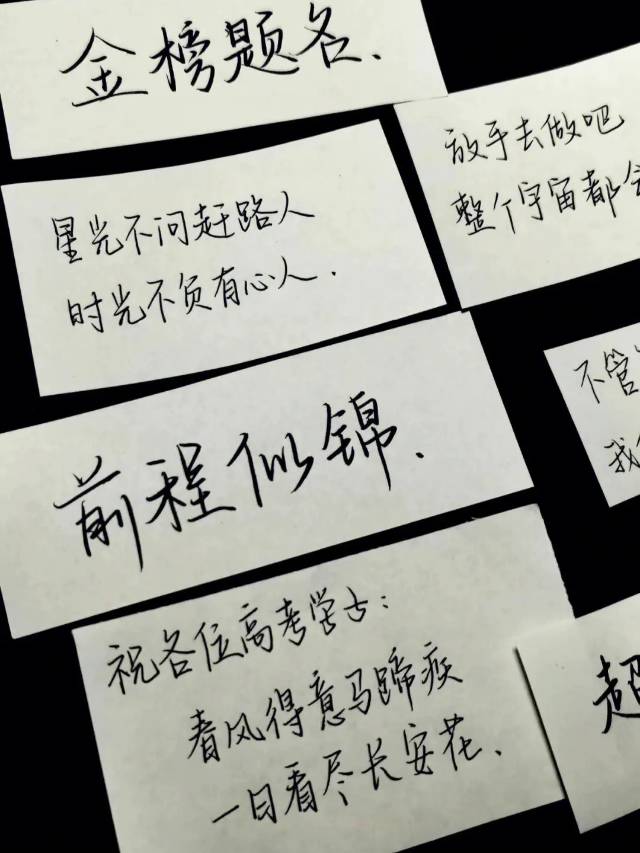 金榜题名.
放手去做吧
整个宇宙都会
星光不问赶路人
时光不负有心人.
不管
我
前程似锦.
祝各位高考学子:
春风得意马蹄疾
一日看尽长安花.
超